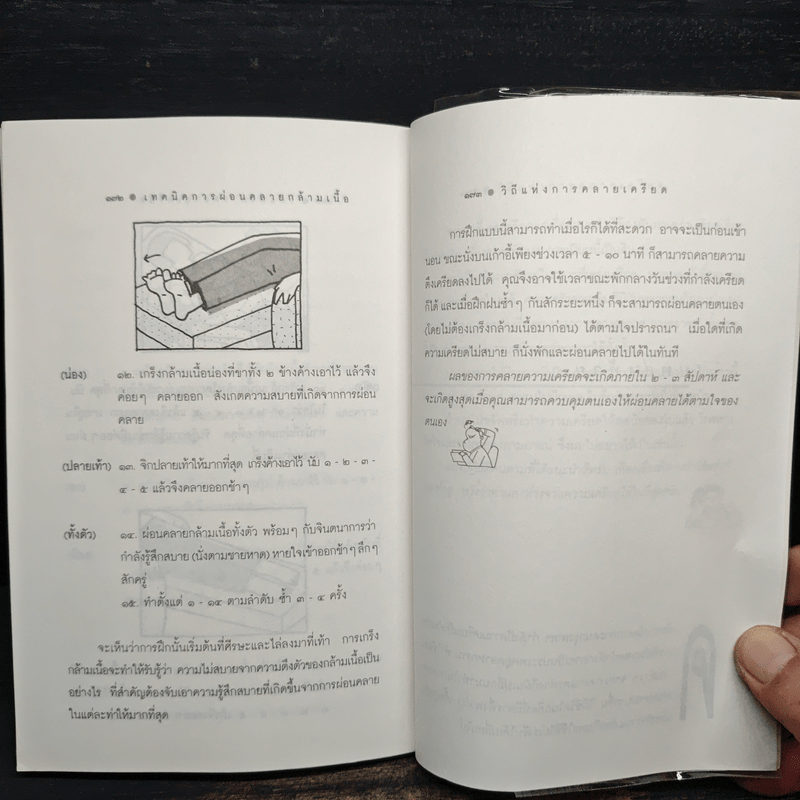 ๑๗๒ ๏ เทคนิคการผ่อนคลายกล้ามเนื้อ
(น่อง) ๑๒. เกร็งกล้ามเนื้อน่องที่ขาทั้ง ๒ ข้างค้างเอาไว้ แล้วจึง
ค่อยๆ คลายออก สังเกตความสบายที่เกิดจากการผ่อน
คลาย
(ปลายเท้า) ๑๓. จิกปลายเท้าให้มากที่สุด เกร็งค้างเอาไว้ นับ ๑ - ๒ - ๓ -
๔ - ๕ แล้วจึงคลายออกช้าๆ
(ทั้งตัว) ๑๔. ผ่อนคลายกล้ามเนื้อทั้งตัว พร้อมๆ กับจินตนาการว่า
กำลังรู้สึกสบาย (นั่งตามชายหาด) หายใจเข้าออกช้าๆ ลึกๆ
สักครู่
๑๕. ทำตั้งแต่ ๑ - ๑๔ ตามลำดับ ซ้ำ ๓ - ๔ ครั้ง
จะเห็นว่าการฝึกนั้นเริ่มต้นที่ศีรษะและไล่ลงมาที่เท้า การเกร็ง
กล้ามเนื้อจะทำให้รับรู้ว่า ความไม่สบายจากความตึงตัวของกล้ามเนื้อเป็น
อย่างไร ที่สำคัญต้องจับเอาความรู้สึกสบายที่เกิดขึ้นจากการผ่อนคลาย
ในแต่ละท่าให้มากที่สุด
๑๗๓ ๏ วิถีแห่งการคลายเครียด
การฝึกแบบนี้สามารถทำเมื่อไรก็ได้ที่สะดวก อาจจะเป็นก่อนเข้า
นอน ขณะนั่งบนเก้าอี้เพียงช่วงเวลา ๕ - ๑๐ นาที ก็สามารถคลายความ
ตึงเครียดลงไปได้ คุณจึงอาจใช้เวลาขณะพักกลางวันช่วงที่กำลังเครียด
ก็ได้ และเมื่อฝึกฝนซ้ำๆ กันสักระยะหนึ่ง ก็จะสามารถผ่อนคลายตนเอง
(โดยไม่ต้องเกร็งกล้ามเนื้อมาก่อน) ได้ตามใจปรารถนา เมื่อใดที่เกิด
ความเครียดไม่สบาย ก็นั่งพักและผ่อนคลายไปได้ในทันที
ผลของการคลายความเครียดจะเกิดภายใน ๒ - ๓ สัปดาห์ และ
จะเกิดสูงสุดเมื่อคุณสามารถควบคุมตนเองให้ผ่อนคลายได้ตามใจของ
ตนเอง